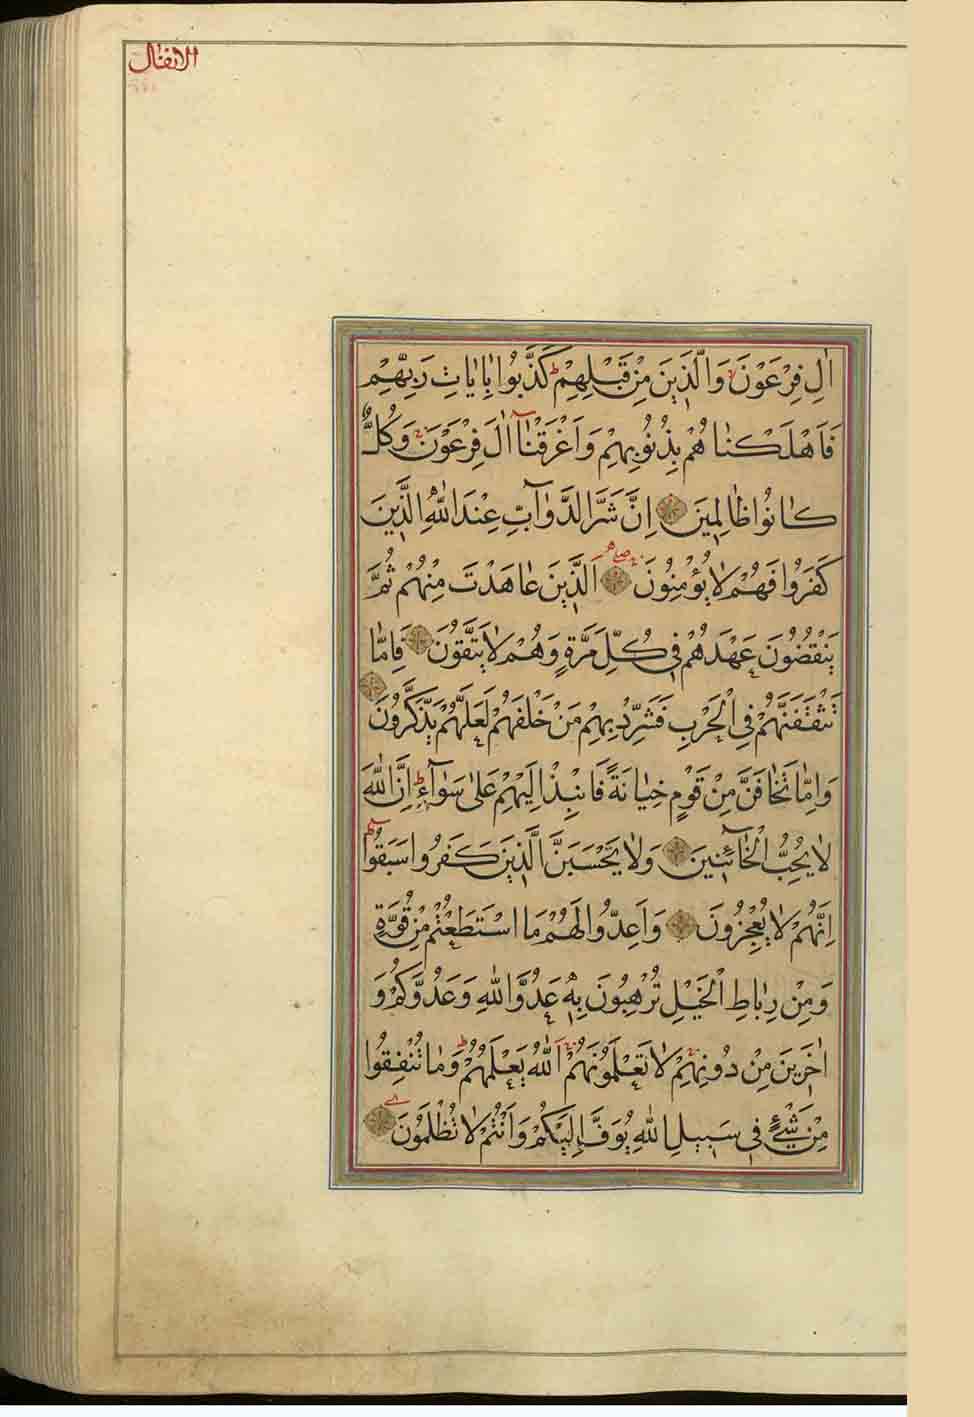 الانفال
اٰلِ فِرْعَوْنَ وَالَّذِينَ مِنْ قَبْلِهِمْ كَذَّبُوا بِاٰيَاتِ رَبِّهِمْ
فَاَهْلَكْنَاهُمْ بِذُنُوبِهِمْ وَاَغْرَقْنَٓا اٰلَ فِرْعَوْنَ وَكُلٌّ
كَانُوا ظَالِمِينَ اِنَّ شَرَّ الدَّوَٓابِّ عِنْدَ اللّٰهِ الَّذِينَ
كَفَرُوا فَهُمْ لَا يُؤْمِنُونَ اَلَّذِينَ عَاهَدْتَ مِنْهُمْ ثُمَّ
يَنْقُضُونَ عَهْدَهُمْ فِي كُلِّ مَرَّةٍ وَهُمْ لَا يَتَّقُونَ فَاِمَّا
تَثْقَفَنَّهُمْ فِي الْحَرْبِ فَشَرِّدْ بِهِمْ مَنْ خَلْفَهُمْ لَعَلَّهُمْ يَذَّكَّرُونَ
وَاِمَّا تَخَافَنَّ مِنْ قَوْمٍ خِيَانَةً فَانْبِذْ اِلَيْهِمْ عَلٰى سَوَٓاءٍ اِنَّ اللّٰهَ
لَا يُحِبُّ الْخَٓائِنِينَ وَلَا يَحْسَبَنَّ الَّذِينَ كَفَرُوا سَبَقُوا
اِنَّهُمْ لَا يُعْجِزُونَ وَاَعِدُّوا لَهُمْ مَا اسْتَطَعْتُمْ مِنْ قُوَّةٍ
وَمِنْ رِبَاطِ الْخَيْلِ تُرْهِبُونَ بِهِ عَدُوَّ اللّٰهِ وَعَدُوَّكُمْ وَ
اٰخَرِينَ مِنْ دُونِهِمْ لَا تَعْلَمُونَهُمْ اَللّٰهُ يَعْلَمُهُمْ وَمَا تُنْفِقُوا
مِنْ شَيْءٍ فِي سَبِيلِ اللّٰهِ يُوَفَّ اِلَيْكُمْ وَاَنْتُمْ لَا تُظْلَمُونَ